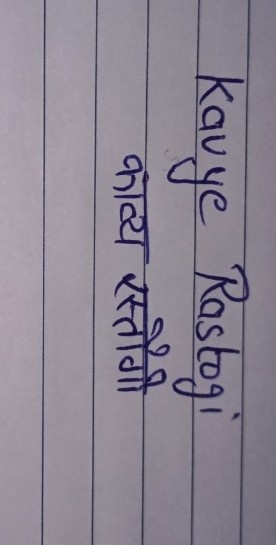 Kavye Rastogi
काव्य रस्तोगी